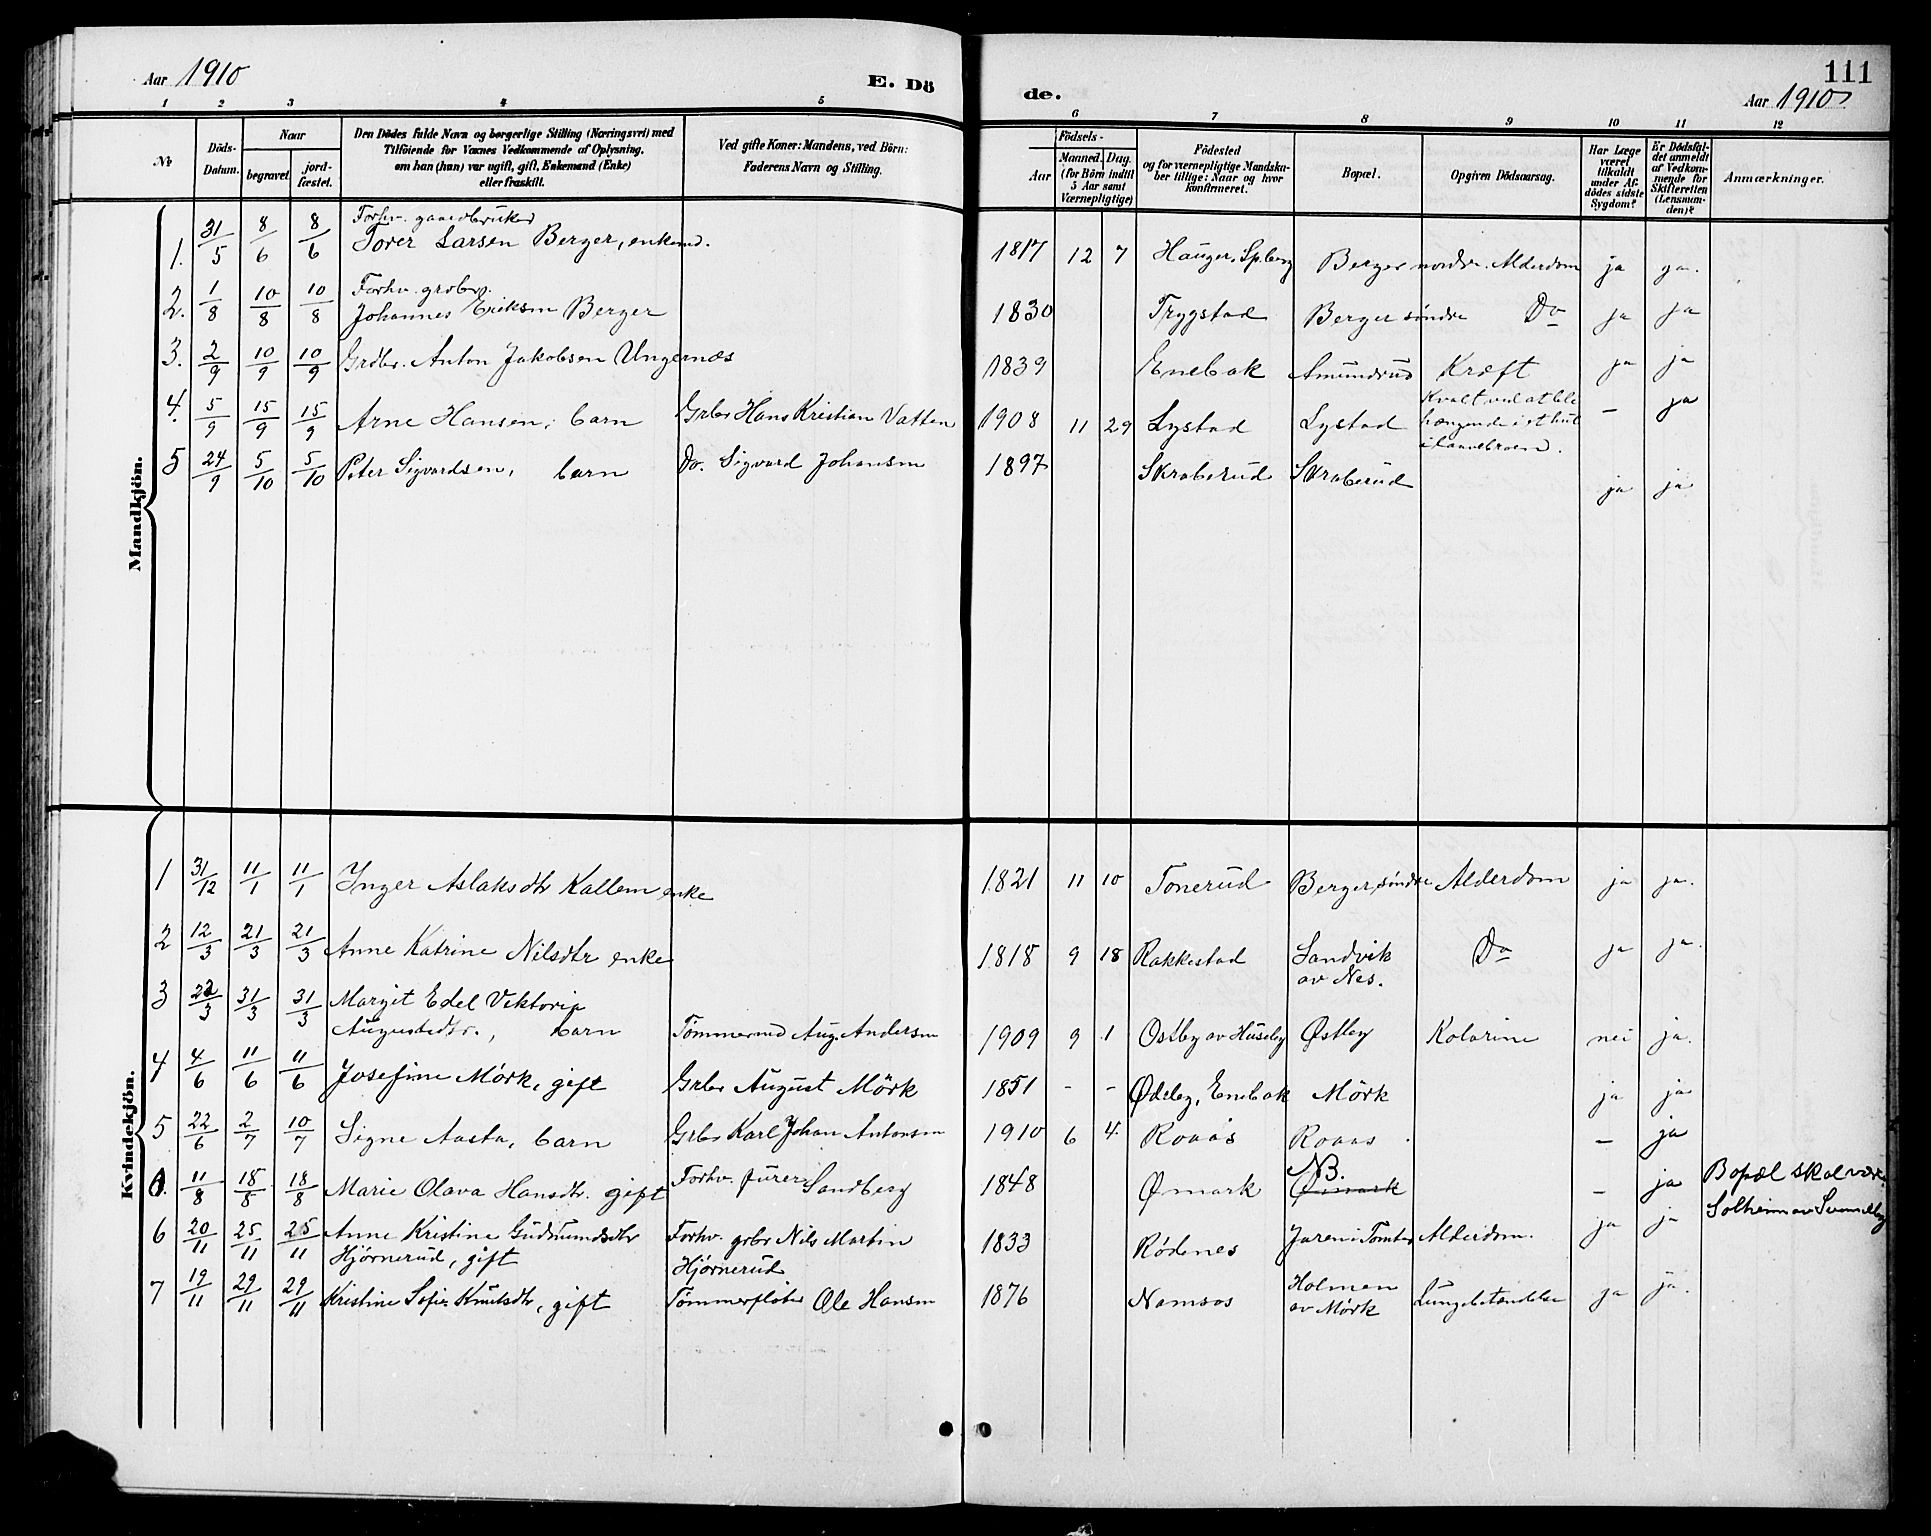 111
Aar 1910
E. Dö
de.
Aar 1910
1 2 3 4 5 6 7 8 9 10 11 12
No
Döds-
Datum.
Naar
begravet.
jord-
fæstet.
Den Dödes fulde Navn og borgerlige Stilling (Næringsvei) med
Tilföiende for Voxnes Vedkommende af Oplysning,
om han (hun) var ugift, gift, Enkemand (Enke)
eller fraskilt.
Ved gifte Koner: Mandens, ved Börn:
Faderens Navn og Stilling.
Födsels-
Aar
Maaned. Dag.
(for Börn indtil
5 Aar samt
Værnepligtige)
Födested
og for værnepligtige Mandska-
ber tillige: Naar og hvor
konfirmeret.
Bopæl.
Opgiven Dödsaarsag.
Har Læge
været
tilkaldt
under Af-
dödes sidste
Sygdom?
Er Dödsfal-
det anmeldt
af Vedkom-
mende for
Skifteretten
(Lensman-
den)?
Anmærkninger.
Mandkjön.
Forhv. gaardbruker
1. 31/5 8/6 8/6 Torer Larsen Berger, enkemd. 1817 12 7 Hauger, Sp.berg Berger nordre. Alderdom ja ja.
Forhv. grdbr.
2. 1/8 10/8 10/8 Johannes Eriksen Berger 1830 Trygstad Berger söndre Do ja ja
3. 2/9 10/9 10/9 Grdbr. Anton Jakobsen Ungernæs 1839 Enebak Amundrud Kræft ja ja
4. 5/9 15/9 15/9 Arne Hansen, barn Grbr Hans Kristian Vatten 1908 11 29 Lystad Lystad Kvalt ved at bli
hængende i et hul
i laavebroen. - ja
5 24/9 5/10 5/10 Peter Sigvardsen, barn Do. Sigvard Johansen 1897 Skraberud Skraberud ja ja
Kvindekjön.
1 31/12 11/1 11/1 Inger Aslaksdtr Kallem enke 1821 11 10 Tonerud Berger, söndre Alderdom ja ja.
2 12/3 21/3 21/3 Anne Katrine Nilsdtr enke 1818 9 18 Rakkestad Sandvik
av Nes. Do ja ja.
3 22/3 31/3 31/3 Margit Edel Viktoria
Augustsdtr., barn Tömmermd Aug. Andersen 1909 9 1 Ostby av Huseby Østby Kolerine nei ja.
4 4/6 11/6 11/6 Josefine Mörk, gift Grbr August Mörk 1851 - - Ødeby, Enebak Mörk ja ja
5 22/6 2/7 10/7 Signe Aasta, barn Grbr Karl Johan Antonsen 1910 6 4 Roaas Roaas - ja
11/8 18/8 18/8 Marie Olava Hansdtr. gift Forhv. furer Sandberg 1848 Ømark NB.
Ømark - ja Bopæl skal være
Solheim av
6 20/11 25/11 25/11 Anne Kristine Gudmundsdtr
Hjørnerud, gift Forhv. grbr Nils Martin
Hjørnerud 1833 Rödenes Jaren i Tomter Alderdom. ja ja
7 19/11 29/11 29/11 Kristine Sofie Knutsdtr, gift Tømmerfløter Ole Hansen 1876 Namsos Holmen
av Mörk Lungebetændelse ja ja.